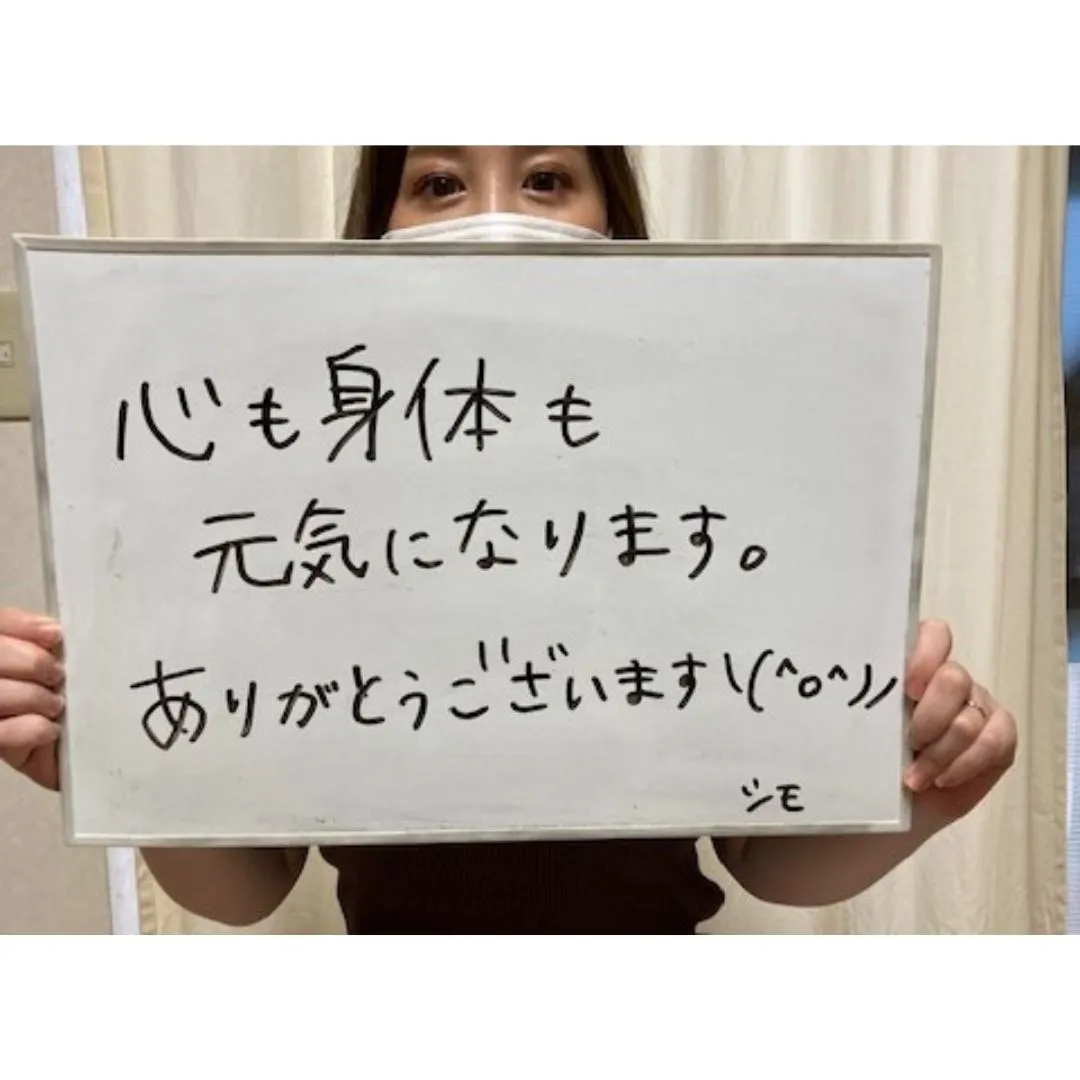 心も身体も
元気になります。
ありがとうございます\(^o^)/
シモ